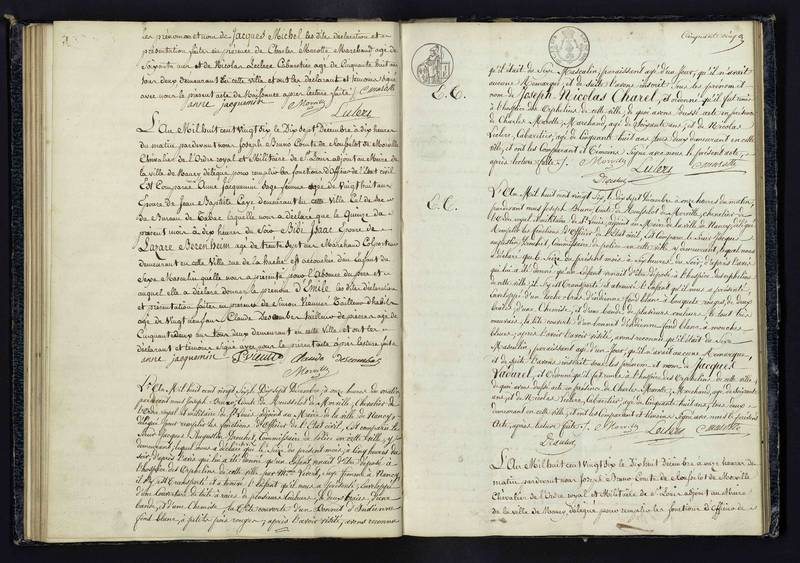 les prénom et nom de Jacques Michel les dites déclaration et
présentation faites en présence de Charles Marotte Marchand agé de
soixante ans et de Nicolas Leclere Cabaretier agé de Cinquante huit ans
tous deux demeurant en cette ville et ont les déclarant et témoins signé
avec nous le présent acte de Naissance après lecture faite
anne jacquemin Morville Leclere Marotte
L'An Mil huit cent vingt six le Dix Sept Décembre à dix heures
du matin pardevant nous Joseph Bruno Comte de de Morville
Chevalier de l'Ordre royal et Militaire de St Louis Adjoint au Maire de
la Ville de Nancy délégué pour remplir les fonctions d'Officier de l'Etat civil
Est Comparue Anne Jacquemin Sage femme agée de Vingt huit ans
Epouse de Jean Baptiste demeurant en cette Ville
Bureau de Tabac laquelle nous a déclaré que le Quinze du
présent mois à dix heures du Soir Bibi Isaac Epouse de
Lazare Berenheim agé de trente Sept ans Marchand Colporteur
demeurant en cette Ville rue de la hache est accouchée d'un Enfant du
Sexe Masculin quelle nous a présenté pour l'absence du père et
auquel elle a déclaré donner le prénom d'Emile Les dites déclaration
et présentation faites en présence de Simon Tailleur d'habits
agé de Vingt neuf ans Claude Descombes tailleur de pierre agé de
Cinquante deux ans tous deux demeurant en cette Ville et ont les
déclarant et témoins Signé avec nous le présent acte après lecture faite
anne jacquemin Claude Descombes
Morville
L'An Mil huit cent vingt Six le Dix Sept Décembre à onze heures du matin
pardevant nous Joseph Bruno Comte de de Morville, Chevalier de
l'Ordre royal et militaire de St Louis, adjoint au Maire de la ville de Nancy
délégué pour remplir les fonctions d'Officier de l'Etat civil, est comparu le
Sieur Jacques Augustin Commissaire de police en cette Ville, y
demeurant, lequel nous a déclaré que le Seize du présent mois, à cinq heures du
soir, d'après l'avis qui lui a été donné qu'un Enfant venait d'être déposé à
l'hospice des Orphelins de cette ville
il s'y est transporté et a trouvé l'enfant qu'il nous a présenté, enveloppé
d'une Couverture de de plusieurs Couleurs,
bande, et d'une Chemise, la tête couverte d'un Bonnet d'Indienne
fond blanc, à petits pois rouges, après l'avoir visité, avons reconnu
E. C.
qu'il était du Sexe Masculin, paraissant agé d'un jour, qu'il n'avait
aucune remarque, et de suite l'avons inscrit sous les prénoms et
nom de Joseph Nicolas Charel, et ordonné qu'il fut remis
à l'hospice des Orphelins de cette ville, de quoi avons dressé acte en présence
de Charles Marotte, Marchand, agé de soixante ans, et de Nicolas
Leclere, Cabaretier, agé de Cinquante huit ans, tous deux demeurant en cette
ville, et ont les Comparant et Témoins Signé avec nous le présent acte,
après lecture faite. Morville Leclere Marotte
E. C.
L'An Mil huit cent vingt Six, le dix sept Décembre à onze heures du matin,
pardevant nous Joseph Bruno, Comte de de Morville, chevalier de
l'Ordre royal et militaire de St Louis, adjoint au Maire de la ville de Nancy, délégué
pour remplir les fonctions d'Officier de l'Etat civil, est Comparu le Sieur Jacques
Augustin Commissaire de police en cette ville y demeurant, lequel nous
a déclaré que le Seize du présent mois, à six heures du Soir, d'après l'avis
qui lui a été donné qu'un Enfant venait d'être déposé à l'hospice des orphelins
de cette ville, il s'y est transporté et a trouvé l'Enfant qu'il nous a présenté,
enveloppé d'un d'indienne fond blanc à bouquets rouges, de deux
d'une Chemise, et d'une bande de plusieurs couleurs, le tout très
mauvais, la tête couverte d'un bonnet d'indienne fond blanc à
blanches, après l'avoir visité, avons reconnu qu'il était du Sexe
Masculin, paraissant agé d'un jour, qu'il n'avait aucune Remarque,
et de suite l'avons inscrit sous les prénom et nom de Jacques
et ordonné qu'il fut remis à l'hospice des Orphelins de cette ville,
de quoi avons dressé acte en présence de Charles Marotte, Marchand, agé de soixante
ans, et de Nicolas Leclere, Cabaretier, agé de Cinquante huit ans, tous deux
demeurant en cette ville, et ont les Comparant et Témoins Signé avec nous le présent
Acte, après lecture faite. Morville Leclere Marotte
L'An Mil huit cent Vingt Six le Dix huit Décembre à onze heures du
matin pardevant nous Joseph Bruno Comte de de Morville
Chevalier de l'Ordre royal et Militaire de St Louis adjoint au Maire
de la ville de Nancy délégué pour remplir les fonctions d'Officier de